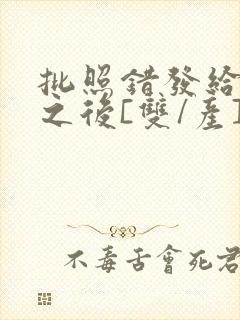 批照錯發給
之後[雙/產]
不毒舌會死君